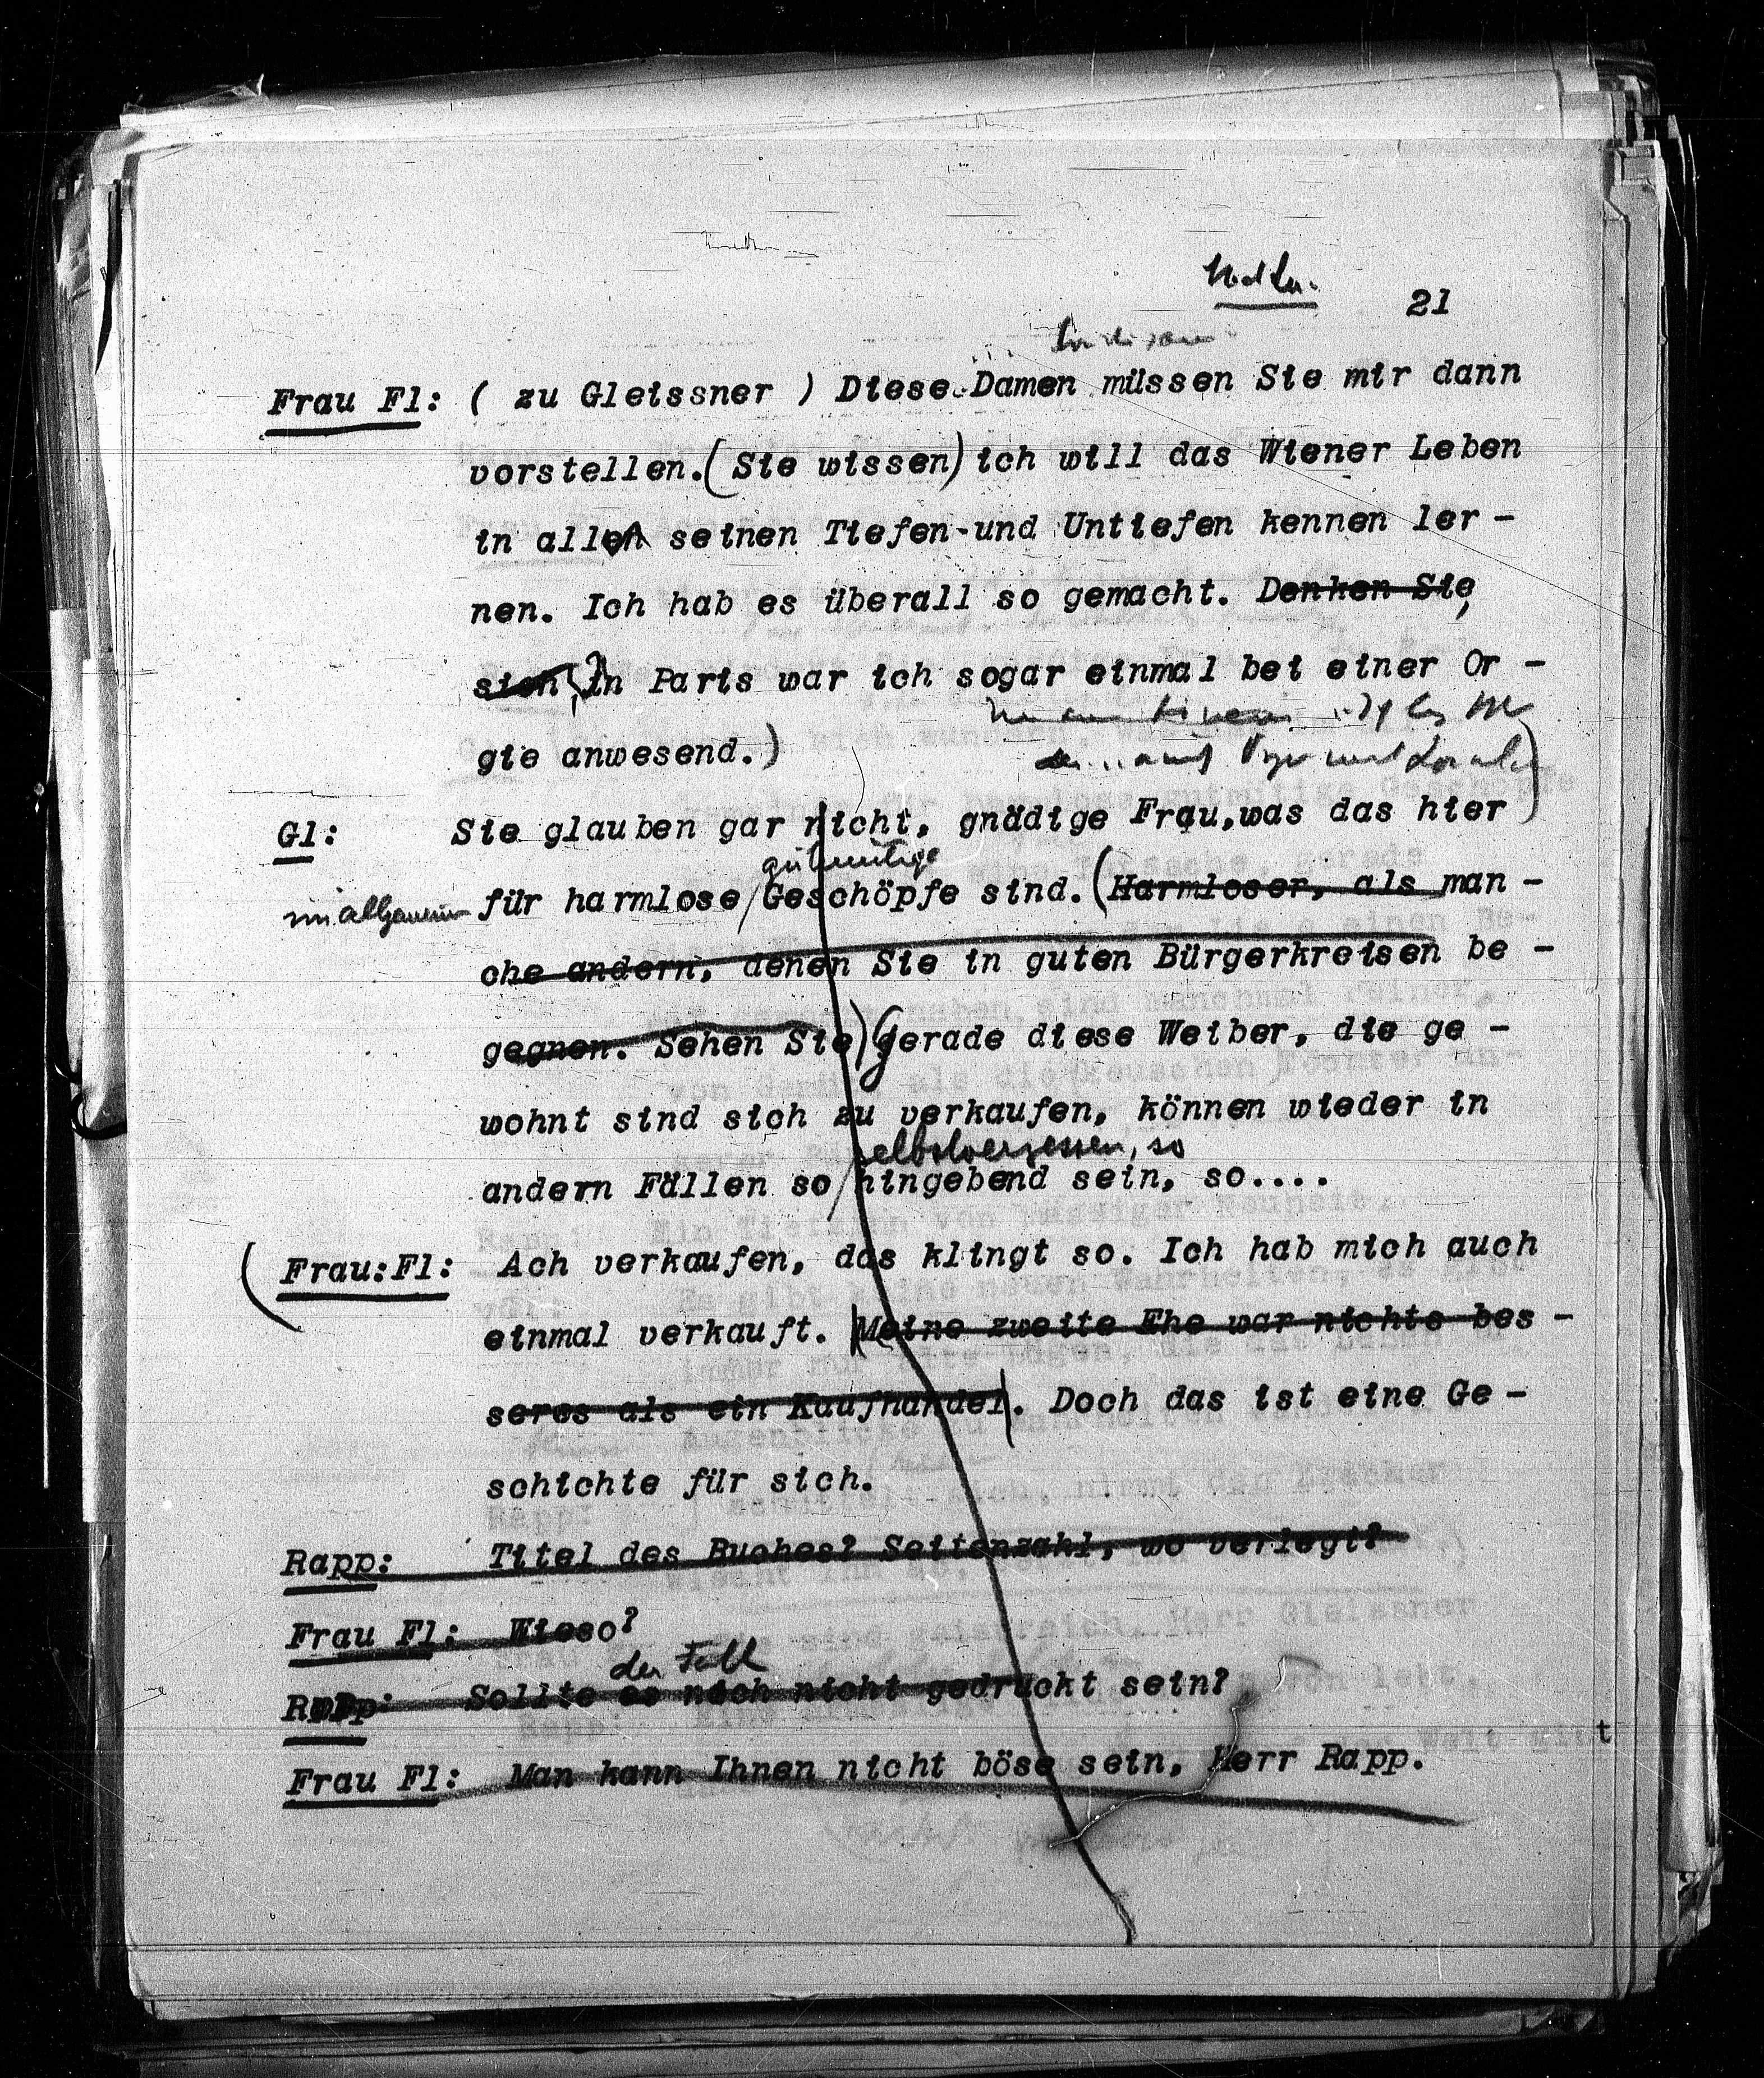 21
Frau Fl: ( zu Gleissner ) Diese Damen müssen Sie mir dann
vorstellen. (Sie wissen) ich will das Wiener Leben
in allen seinen Tiefen und Untiefen kennen ler -
nen. Ich hab es überall so gemacht. Denken Sie
sich, In Paris war ich sogar einmal bei einer Or -
gie anwesend.)
Gl: Sie glauben gar nicht, gnädige Frau, was das hier
gutmütige
im allgemeinen für harmlose Geschöpfe sind. (Harmloser, als man -
che andern, denen Sie in guten Bürgerkreisen be -
gegnen. Sehen Sie) Gerade diese Weiber, die ge -
wohnt sind sich zu verkaufen, können wieder in
selbstvergessen, so
andern Fällen so hingebend sein, so....
(Frau:Fl: Ach verkaufen, das klingt so. Ich hab mich auch
einmal verkauft. (Meine zweite Ehe war nichts bes -
seres als ein Kaufhandel). Doch das ist eine Ge -
schichte für sich.
Rapp: Titel des Buches? Seitenzahl, wo verlegt?
Frau Fl: Wieso?
der Fall
Rapp: Sollte es noch nicht gedruckt sein?
Frau Fl: Man kann Ihnen nicht böse sein, Herr Rapp.